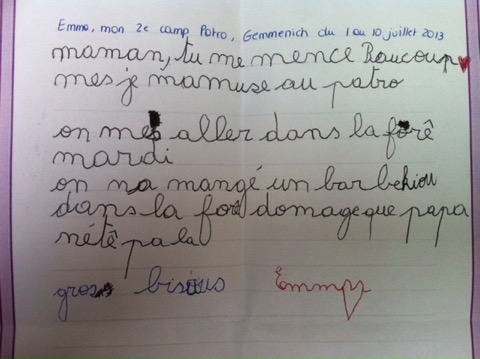 Emma, mon 2e camp Patro, Gemmenich du 1 au 10 juillet 2013
maman, tu me mence Baucoup
mes je mamuse au patro
on mes aller dans la forê
mardi
on na mangé un barbekiou
dans la forê domage que papa
nétê pa la
gros bisous Emma